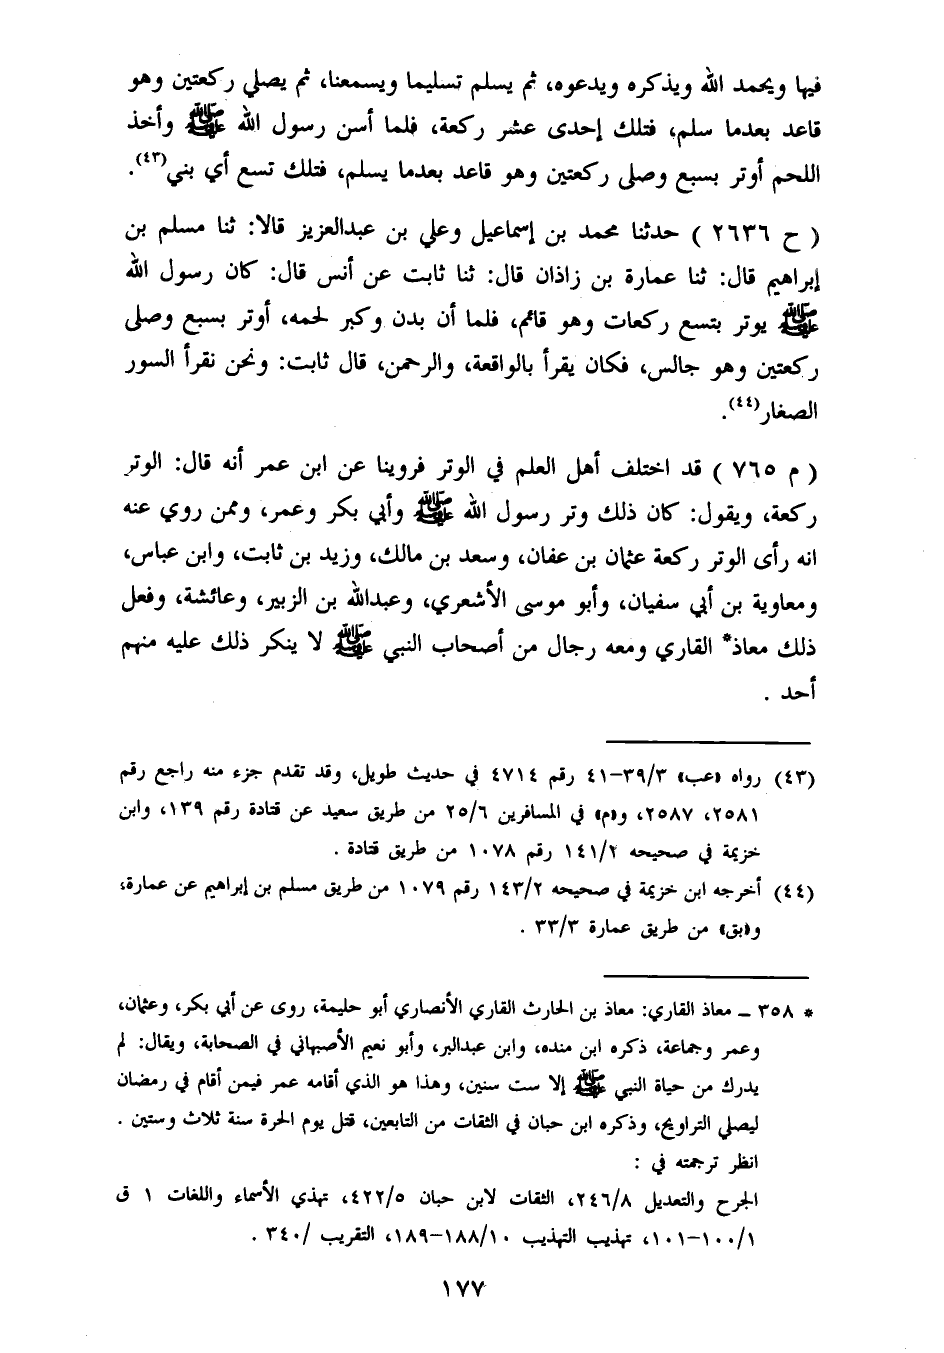 فيها ويحمد الله ويذكره ويدعوه، ثم يسلم تسليما ويسمعنا، ثم يصلي ركعتين وهو
قاعد بعدما سلم، فتلك إحدى عشر ركعة، فلما أسن رسول الله ﷺ وأخذ
اللحم أوتر بسبع وصلى ركعتين وهو قاعد بعدما يسلم، فتلك تسع أي بني(٤٣).
( ح ٢٦٣٦ ) حدثنا محمد بن إسماعيل وعلي بن عبدالعزيز قالا: ثنا مسلم بن
إبراهيم قال: ثنا عمارة بن زاذان قال: ثنا ثابت عن أنس قال: كان رسول الله
ﷺ يوتر بتسع ركعات وهو قائم، فلما أن بدن وكبر لحمه، أوتر بسبع وصلى
ركعتين وهو جالس، فكان يقرأ بالواقعة، والرحمن، قال ثابت: ونحن نقرأ السور
الصغار(٤٤).
( م ٧٦٥ ) قد اختلف أهل العلم في الوتر فروينا عن ابن عمر أنه قال: الوتر
ركعة، ويقول: كان ذلك وتر رسول الله ﷺ وأبي بكر وعمر، وممن روي عنه
انه رأى الوتر ركعة عثمان بن عفان، وسعد بن مالك، وزيد بن ثابت، وابن عباس،
ومعاوية بن أبي سفيان، وأبو موسى الأشعري، وعبدالله بن الزبير، وعائشة، وفعل
ذلك معاذ* القاري ومعه رجال من أصحاب النبي ﷺ لا ينكر ذلك عليه منهم
أحد .
(٤٣) رواه «عب» ٣٩/٣-٤١ رقم ٤٧١٤ في حديث طويل، وقد تقدم جزء منه راجع رقم
٢٥٨١، ٢٥٨٧، و«م» في المسافرين ٢٥/٦ من طريق سعيد عن قتادة رقم ١٣٩، وابن
خزيمة في صحيحه ١٤١/٢ رقم ١٠٧٨ من طريق قتادة .
(٤٤) أخرجه ابن خزيمة في صحيحه ١٤٣/٢ رقم ١٠٧٩ من طريق مسلم بن إبراهيم عن عمارة،
و«بق» من طريق عمارة ٣٣/٣ .
* ٣٥٨ ـ معاذ القاري: معاذ بن الحارث القاري الأنصاري أبو حليمة، روى عن أبي بكر، وعثمان،
وعمر وجماعة، ذكره ابن منده، وابن عبدالبر، وأبو نعيم الأصبهاني في الصحابة، ويقال: لم
يدرك من حياة النبي ﷺ إلا ست سنين، وهذا هو الذي أقامه عمر فيمن أقام في رمضان
ليصلي التراويح، وذكره ابن حبان في الثقات من التابعين، قتل يوم الحرة سنة ثلاث وستين .
انظر ترجمته في :
الجرح والتعديل ٢٤٦/٨، الثقات لابن حبان ٤٢٢/٥، تهذي الأسماء واللغات ١ ق
١٠٠/١-١٠١، تهذيب التهذيب ١٨٨/١٠-١٨٩، التقريب /٣٤٠ .
١٧٧